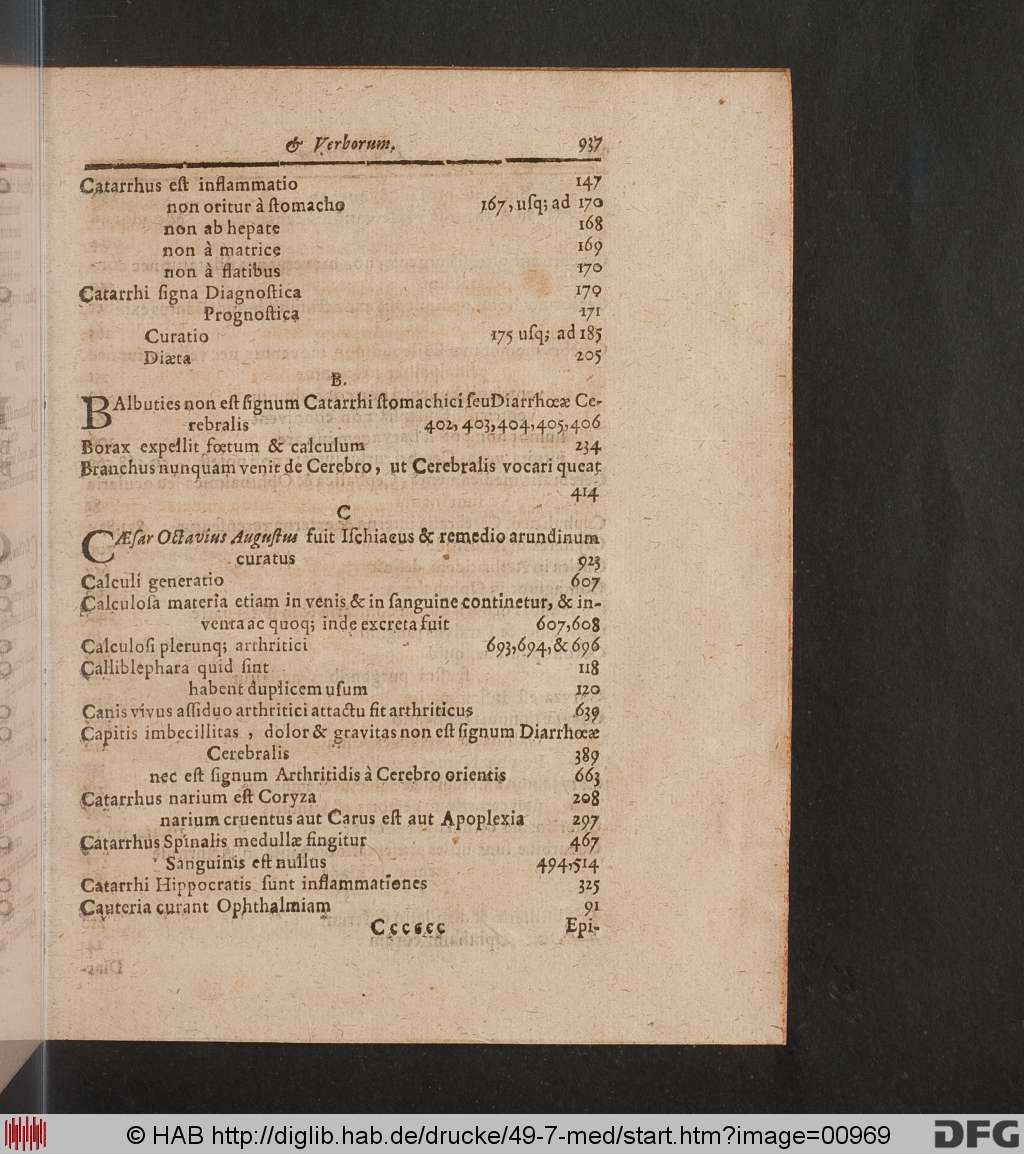 & Verborum. 937
Catarrhus eſt inflammatio 147
non oritur à ſtomacho 167, uſq; ad 170
non ab hepate 168
non à matrice 169
non à flatibus 170
Catarrhi ſigna Diagnoſtica 170
Prognoſtica 171
Curatio 175 uſq; ad 185
Diæta 205
B.
BAlbuties non eſt ſignum Catarrhi ſtomachici ſeu Diarrhœæ Ce-
rebralis 402, 403, 404, 405, 406
Borax expellit fœtum & calculum 234
Branchus nunquam venit de Cerebro, ut Cerebralis vocari queat
414
C
CÆſar Octavius Auguſtus fuit Iſchiacus & remedio arundinum
curatus 923
Calculi generatio 607
Calculoſa materia etiam in venis & in ſanguine continetur, & in-
venta ac quoq; inde excreta fuit 607, 608
Calculoſi plerunq; arthritici 693, 694, & 696
Calliblephara quid ſint 118
habent duplicem uſum 120
Canis vivus aſſiduo arthritici attactu fit arthriticus 639
Capitis imbecillitas, dolor & gravitas non eſt ſignum Diarrhœæ
Cerebralis 389
nec eſt ſignum Arthritidis à Cerebro orientis 663
Catarrhus narium eſt Coryza 208
narium cruentus aut Carus eſt aut Apoplexia 297
Catarrhus Spinalis medullæ fingitur 467
Sanguinis eſt nullus 494, 514
Catarrhi Hippocratis ſunt inflammationes 325
Cauteria curant Ophthalmiam 91
Cccccc Epi-
© HAB http://diglib.hab.de/drucke/49-7-med/start.htm?image=00969 DFG